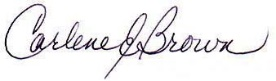 Carlene J. Brown